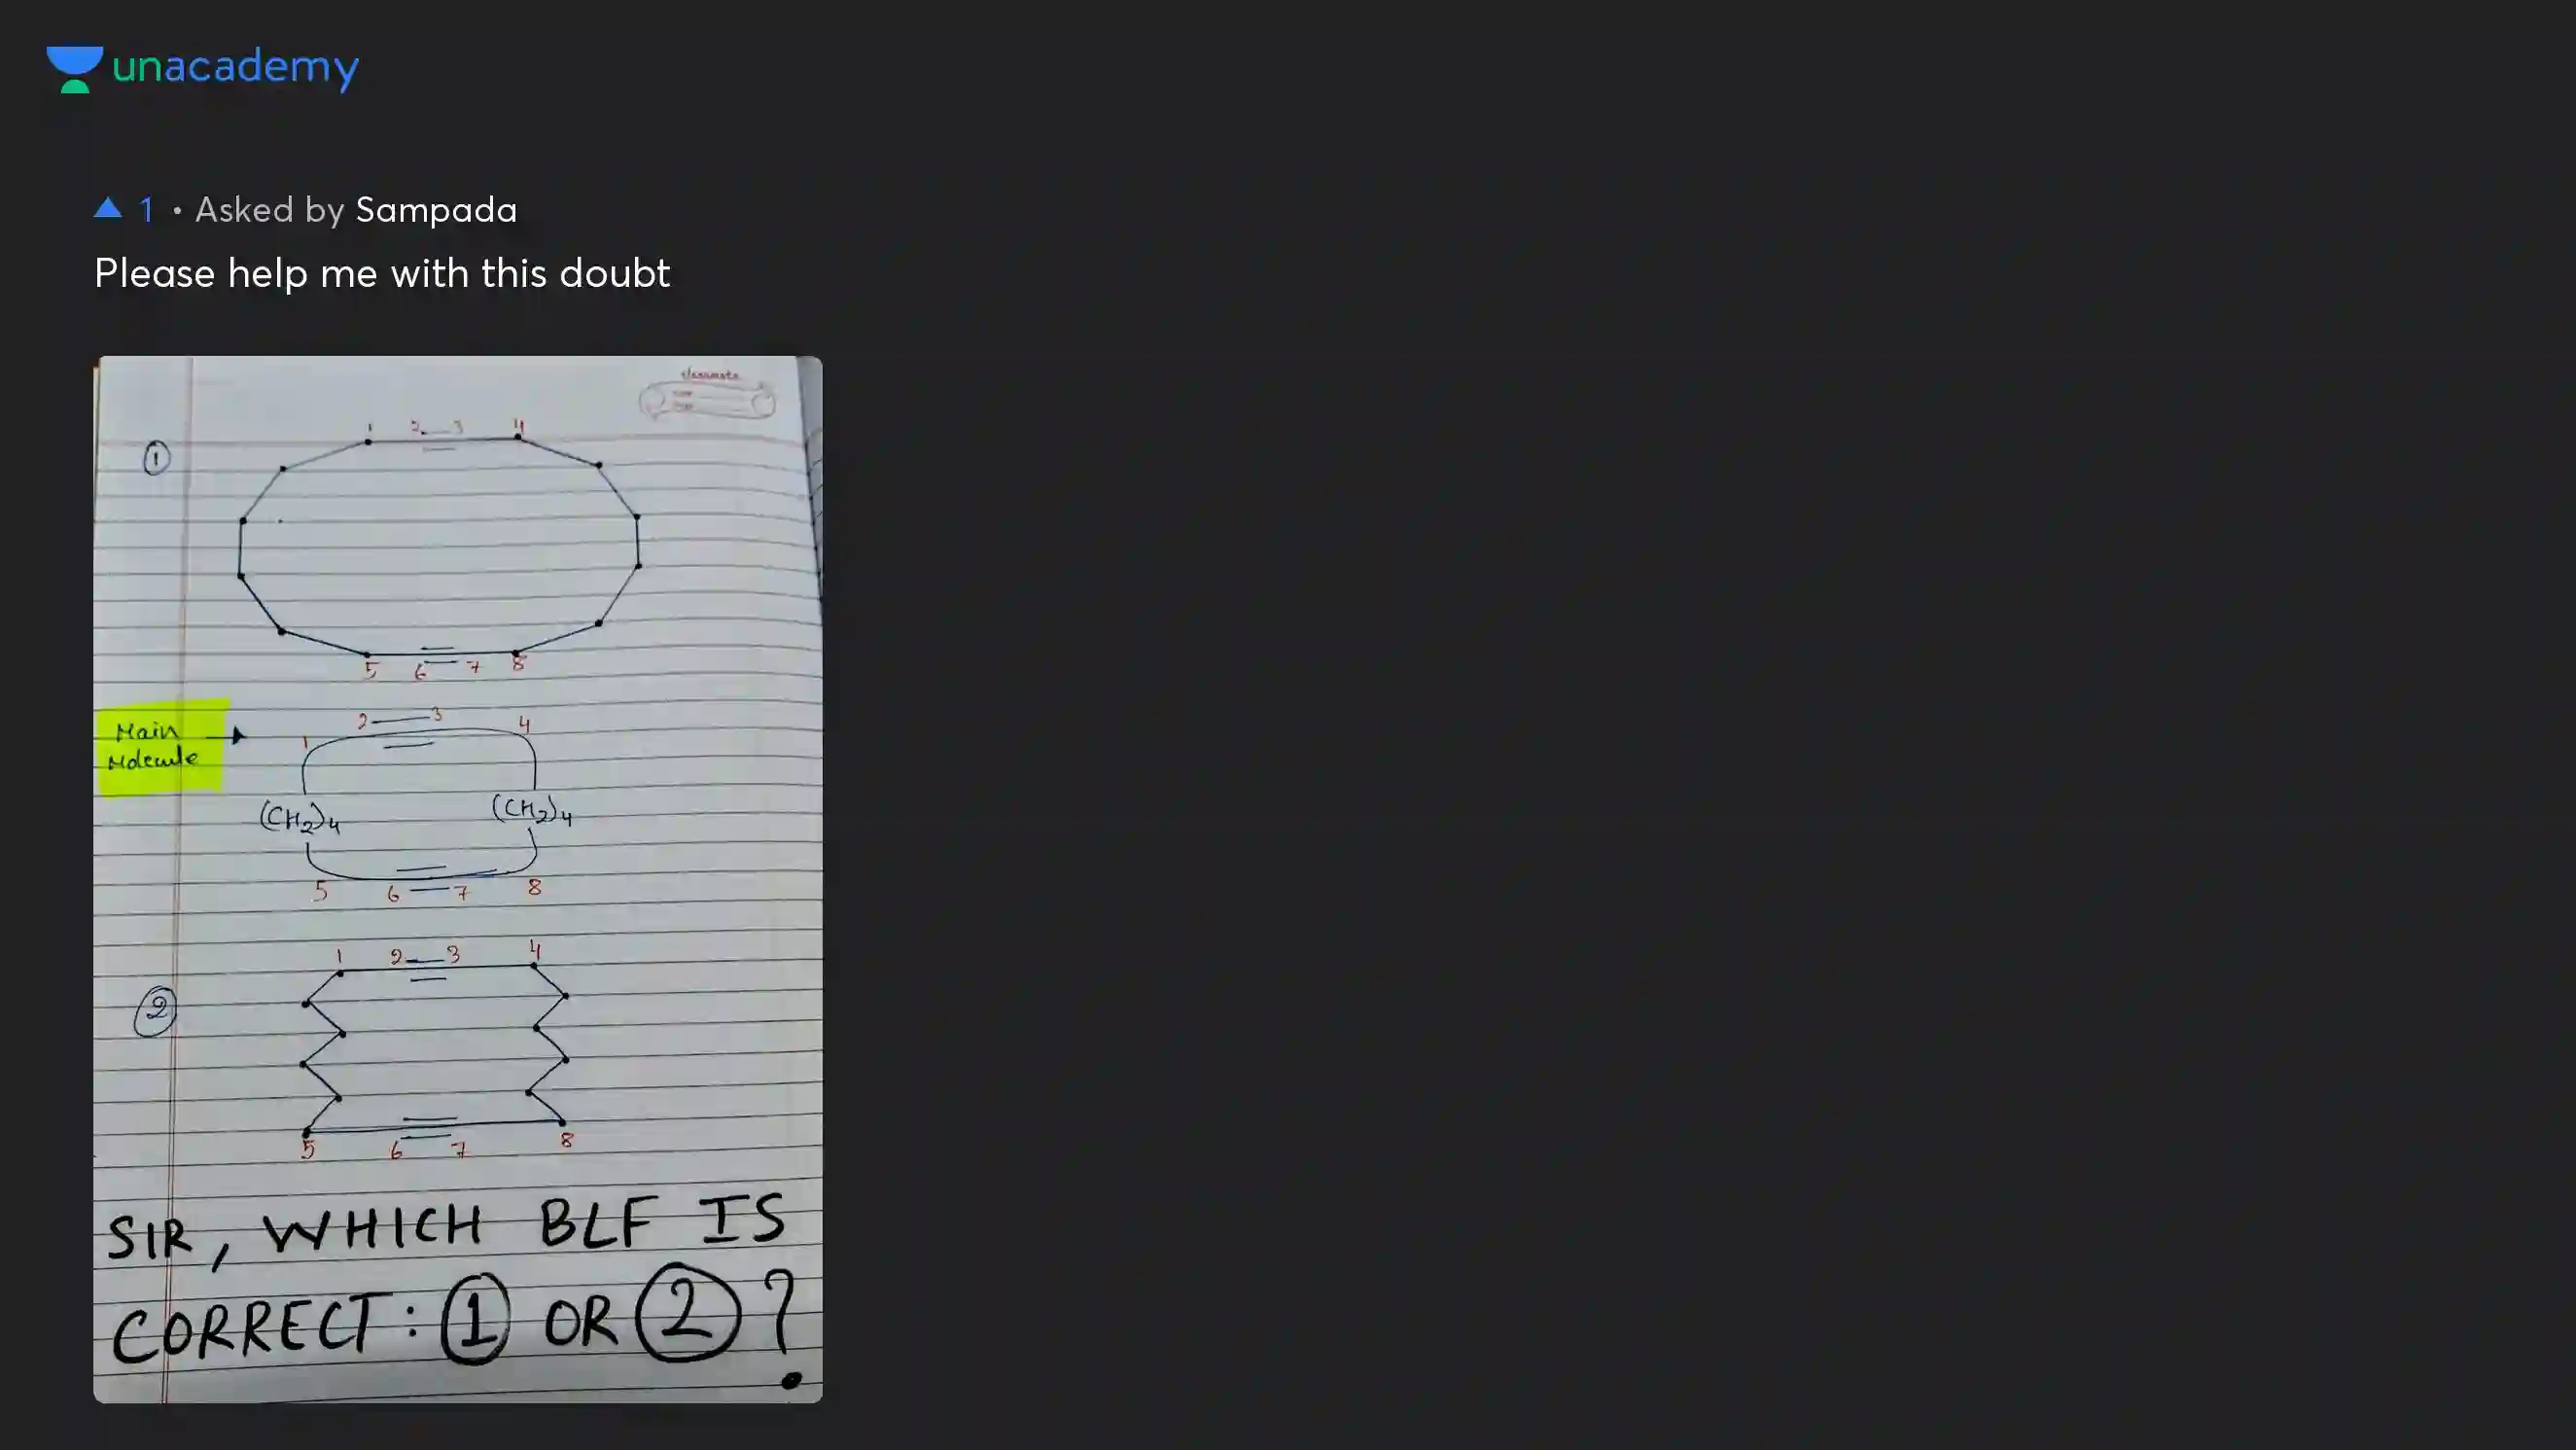 unacademy
1 • Asked by Sampada
Please help me with this doubt
classmate
1 2 3 4
1
5 6 7 8
2 3
1 4
Main
Molecule
(CH2)4 (CH2)4
5 6 7 8
1 2 3 4
2
5 6 7 8
SIR, WHICH BLF IS
CORRECT: 1 OR 2 ?